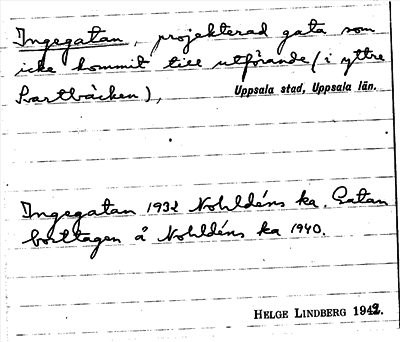 Ingegatan, projekterad gata som
icke kommit till utförande (i yttre
Svartbäcken), Uppsala stad, Uppsala län.
Ingegatan 1932 Nohldéns ka. Gatan
borttagen å Nohldéns ka 1940.
HELGE LINDBERG 1942.